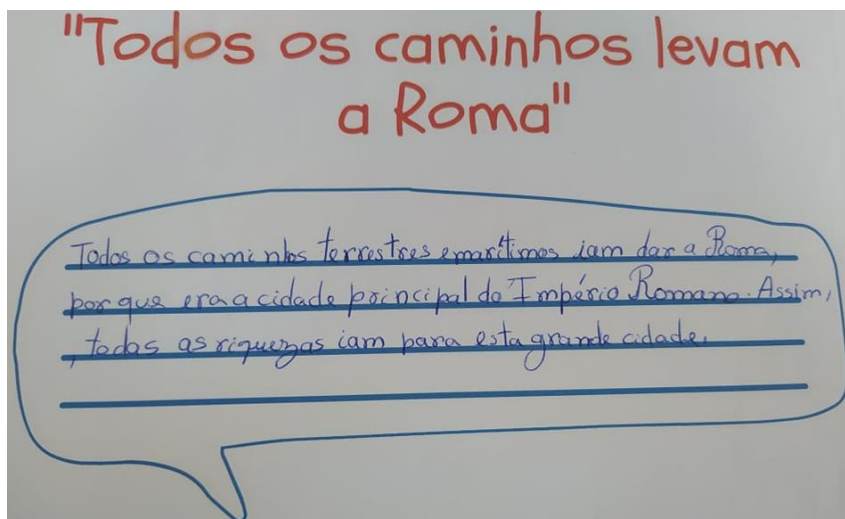 "Todos os caminhos levam
a Roma"
Todos os caminhos terrestres e marítimos iam dar a Roma,
porque era a cidade principal do Império Romano. Assim,
, todas as riquezas iam para esta grande cidade.